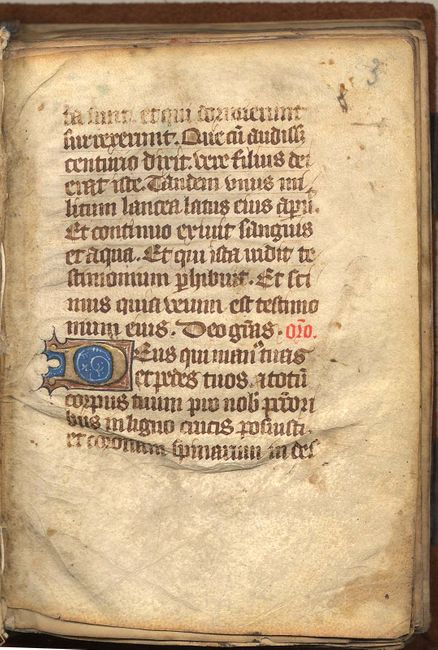 3
ta sunt. et qui dormierunt
surrexerunt. Que cū audiss
centurio dixit. vere filius dei
erat iste. Tandem vnus mi
litum lancea latus eius apuī.
Et continuo exiuit sanguis
et aqua. Et qui ista uidit te
stimonium phibuit. Et sci
mus quia verum est testimo
nium eius. Deo grās. orō.
Deus qui manꝰ tuas
et pedes tuos. ⁊ totū
corpus tuum pro nob̄ pctori
bus in ligno crucis posuisti.
et coronam spinarum in des